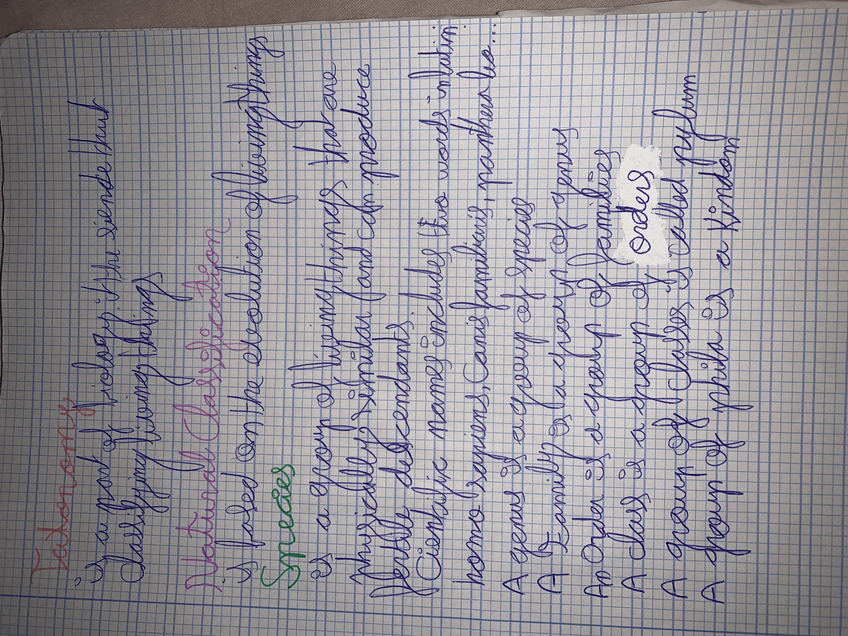 Taxonomy
is a part of biology it the siende that
classifying living things
Natural Classification
is based on the evolution of living things
Species
is a group of living things that are
physically similar and can produce
fertile descendants
Cientific names includes two words in latin:
homo sapiens, canis familiaris, panthera leo...
A genus is a group of species
A Family is a group of genus
An Order is a group of families
A class is a group of orders
A group of classes is called pylum
A group of phila is a kindom